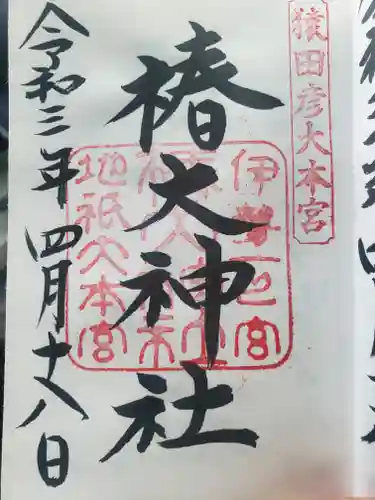 猿田彦大本宮
椿大神社
伊勢一之宮
地祇大本宮
令和三年四月十八日